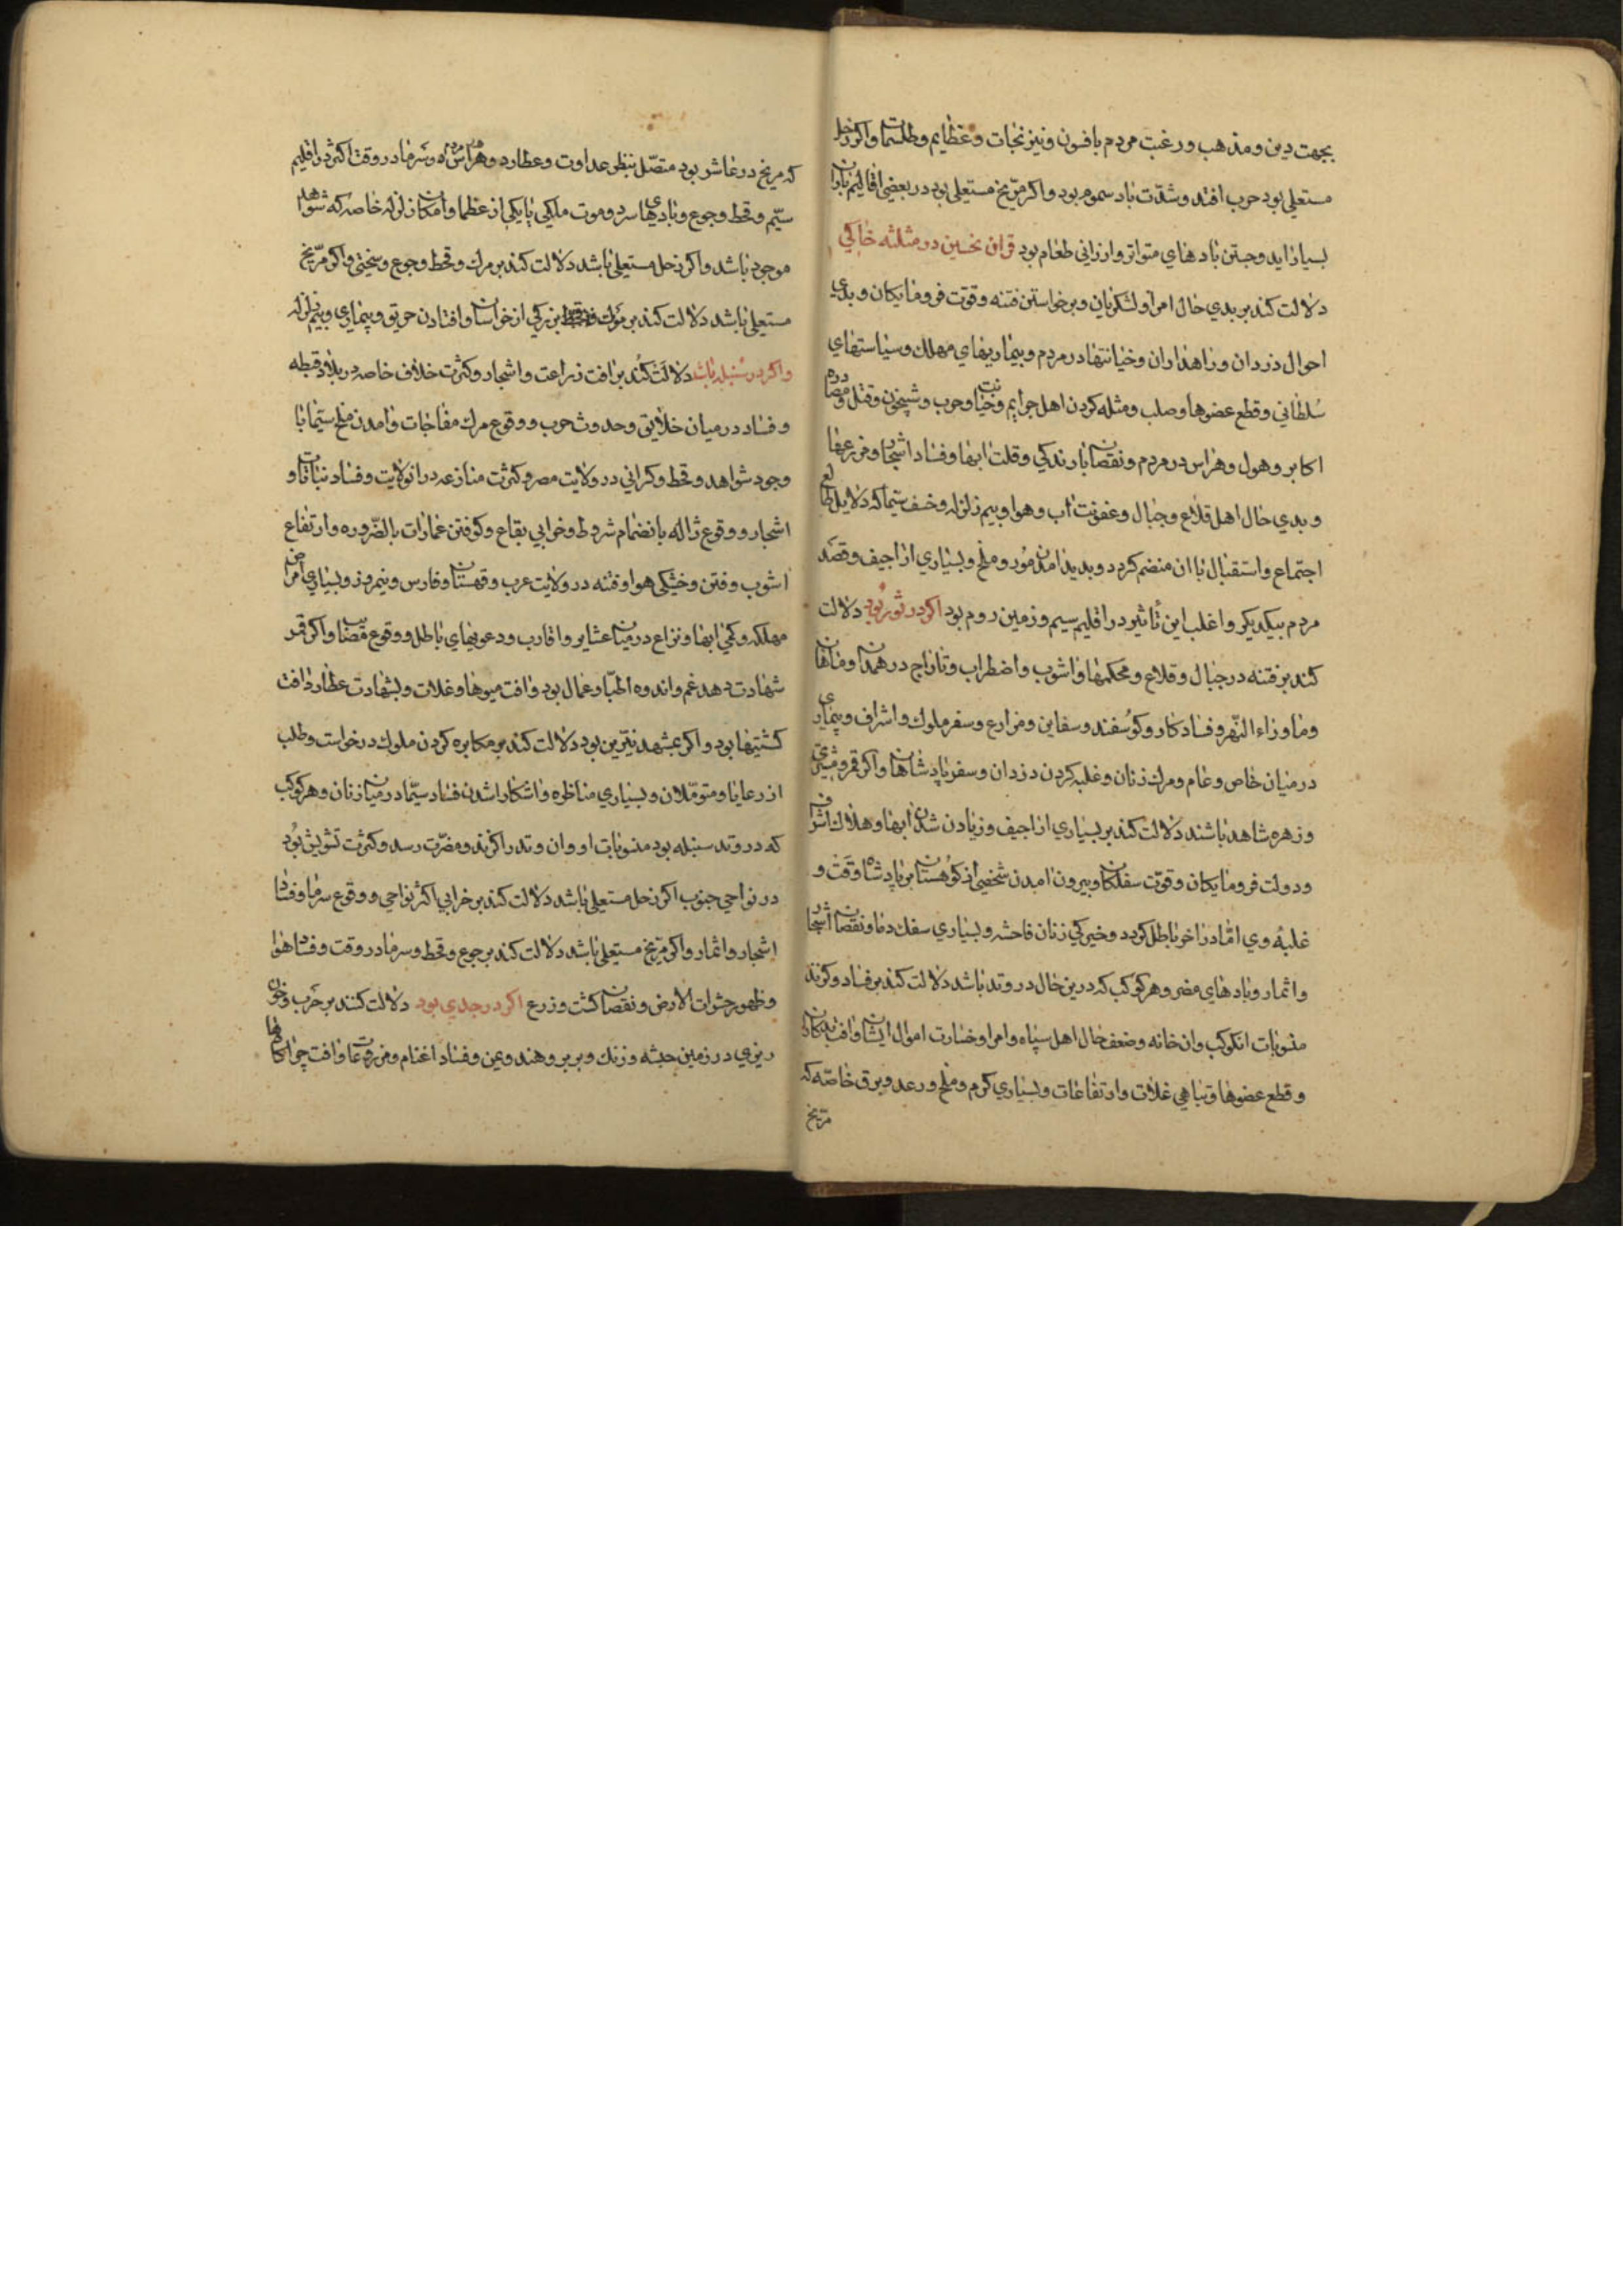 بجهت دین و مذهب و رغبت مردم بافسون و نیرنجات و عظایم و طلسمات و اکر زحل
مستعلی بود حرب افتد و شدّت باد سموم بود و اکر مرّیخ مستعلی بود در بعضی اقالیم باران
بسیار اید و جستن بادهای متواتر و ارزانی طعام بود قران نحسین در مثلثه خاکی
دلالت کند بر بدی حال امرا و لشکریان و برخواستن فتنه و قوّت فرومایکان و بدی
احوال دزدان و راهداران و خیانتها در مردم و بیماریهای مهلک و سیاستهای
سُلطانی و قطع عضوها و صلب و مثله کردن اهل جرایم و خیانت و حرب و شبیخون و قتل و مصادره
اکابر و هول و هراس در مردم و نقصان بارندکی و قلت ابها و فساد اشجار و مزرعها
و بدی حال اهل قلاع و جبال و عفونت اب و هوا و بیم زلزله و خسف سیّما که دلایل طالع
اجتماع و استقبال با ان منضم کردد و بدید امدن مُور و ملخ و بسیاری اراجیف و قصد
مردم بیکدیکر و اغلب این تأثیر در اقلیم سیم و زمین روم بود اکر در ثور بُود دلالت
کند بر فتنه در جبال و قلاع و محکمها و اشوب و اضطراب و تاراج در همدان و ماهان
و ماوراء النّهر و فساد کار و کوُسفند و سفاین و مزارع و سفر ملوک و اشراف و بیماری
در میان خاص و عام و مرک زنان و غلبه کردن دزدان و سفر پادشاهان و اکر قمر و مشتری
و زهره شاهد باشند دلالت کند بر بسیاری اراجیف و زیادن شدن ابها و هلاک اشراف
و دولت فرومایکان و قوّت سفلکان و بیرون امدن شخصی از کوُهستان بر پادشاه وقت و
غلبهٔ وی امّا در اخر باطل کردد و خیرکی زنان فاحشه و بسیاری سفک دما و نقصان اشجار
و اثمار و بادهای مضر و هر کوکب که درین حال در وتد باشد دلالت کند بر فساد و کزند
منسوبات انکوکب و ان خانه و ضعف حال اهل سپاه و امرا و خسارت اموال ایشان و افت بندکان
و قطع عضوها و تباهی غلات و ارتفاعات و بسیاری کرم و ملخ و رعد و برق خاصّه که
مرّیخ
که مریخ در عاشر بود متصّل بنظر عداوت و عطارد و هراس و سرما در وقت اکثر در اقلیم
سیّم و قحط و جوع و بادهای سرد و موت ملکی یا یکی از عظما و امکان زلزله خاصه که شواهد
موجود باشد و اکر زحل مستعلی باشد دلالت کند بر مرک و قحط و جوع و سختی و اکر مرّیخ
مستعلی باشد دلالت کند بر موت بزرکی از خراسان و افتادن حریق و بیماری و بیم زلزله
و اکر در سنبله باشد دلالَت کُند بر افت زراعت و اشجار و کثرت خلاف خاصه در بلاد قطبه
و فساد در میان خلایق و حدوث حرب و وقوع مرک مفاجات و امدن ملخ سیّما با
وجود شواهد و قحط و کرانی در ولایت مصر و کثرت منازعه در ان ولایت و فساد نباتات و
اشجار و وقوع ژاله بانضمام شروط و خرابی بقاع و کوفتن عمارات بالضّروره و ارتفاع
اشوب و فتن و خشکی هوا و فتنه در ولایت عرب و قهستان و فارس و نیمروز و بسیاری امراض
مهلکه و کمی ابها و نزاع در میان عشایر و اقارب و دعویهای باطل و وقوع مصائب و اکر قمر
شهادت دهد غم و اندوه اطبّا و عمال بود و افت میوها و غلات و بشهادت عطارد افت
کشتیها بود و اکر بمشهد نیّرین بود دلالت کند بر مکابره کردن ملوک در خواست و طلب
از رعایا و متموّلان و بسیاری مناظره و اشکارا شدن فساد سیّما در میان زنان و هر کوکب
که در وتد سنبله بود منسوبات او و ان وتد را کزند و مضرّت رسد و کثرت تشویش بُود
در نواحی جنوب اکر زحل مستعلی باشد دلالت کند بر خرابی اکثر نواحی و وقوع سرما و فساد
اشجار و اثمار و اکر مرّیخ مستعلی باشد دلالت کند بر جوع و قحط و سرما در وقت و فساد هوا
و ظهور حشرات الارض و نقصان کشت و زرع اکر در جدی بود دلالت کنند بر حَرب و خون
ریزی در زمین حبشه و زنک و بربر و هند و یمن و فساد اغنام و مزروعات و افت چراکاهها